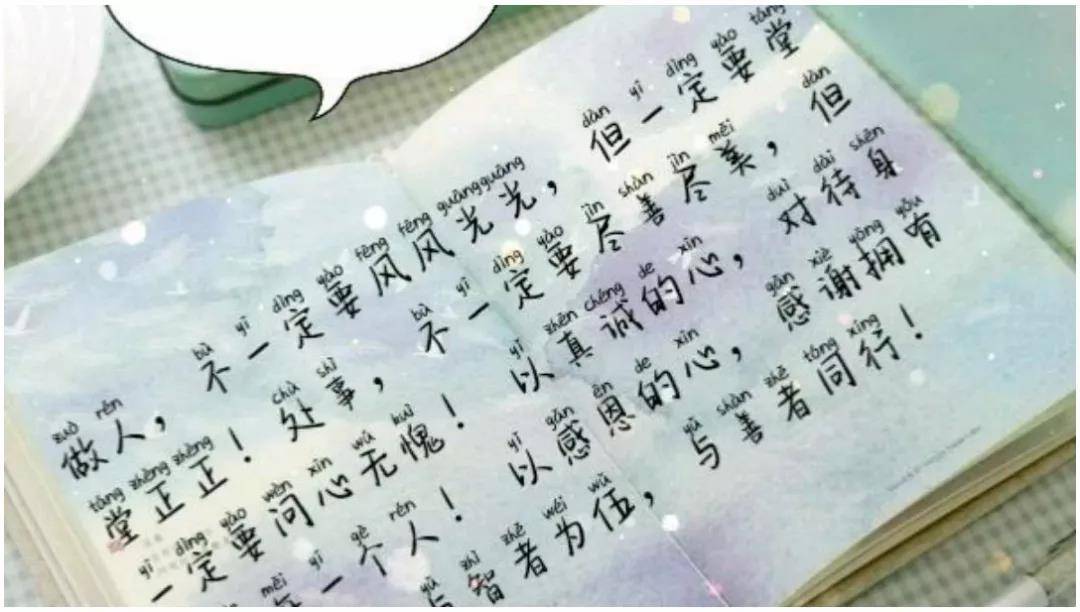 zuò rén bù yī dìng yào fēng fēng guāng guāng dàn yī dìng yào táng
做人，不一定要风风光光，但一定要堂
táng zhèng zhèng chǔ shì bù yī dìng yào jìn shàn jìn měi dàn
堂正正！处事，不一定要尽善尽美，但
yī dìng yào wèn xīn wú kuì yǐ zhēn chéng de xīn duì dài shēn
一定要问心无愧！以真诚的心，对待身
měi yī gè rén yǐ gǎn ēn de xīn gǎn xiè yōng yǒu
每一个人！以感恩的心，感谢拥有
yǔ zhì zhě wéi wǔ yǔ shàn zhě tóng xíng
与智者为伍，与善者同行！